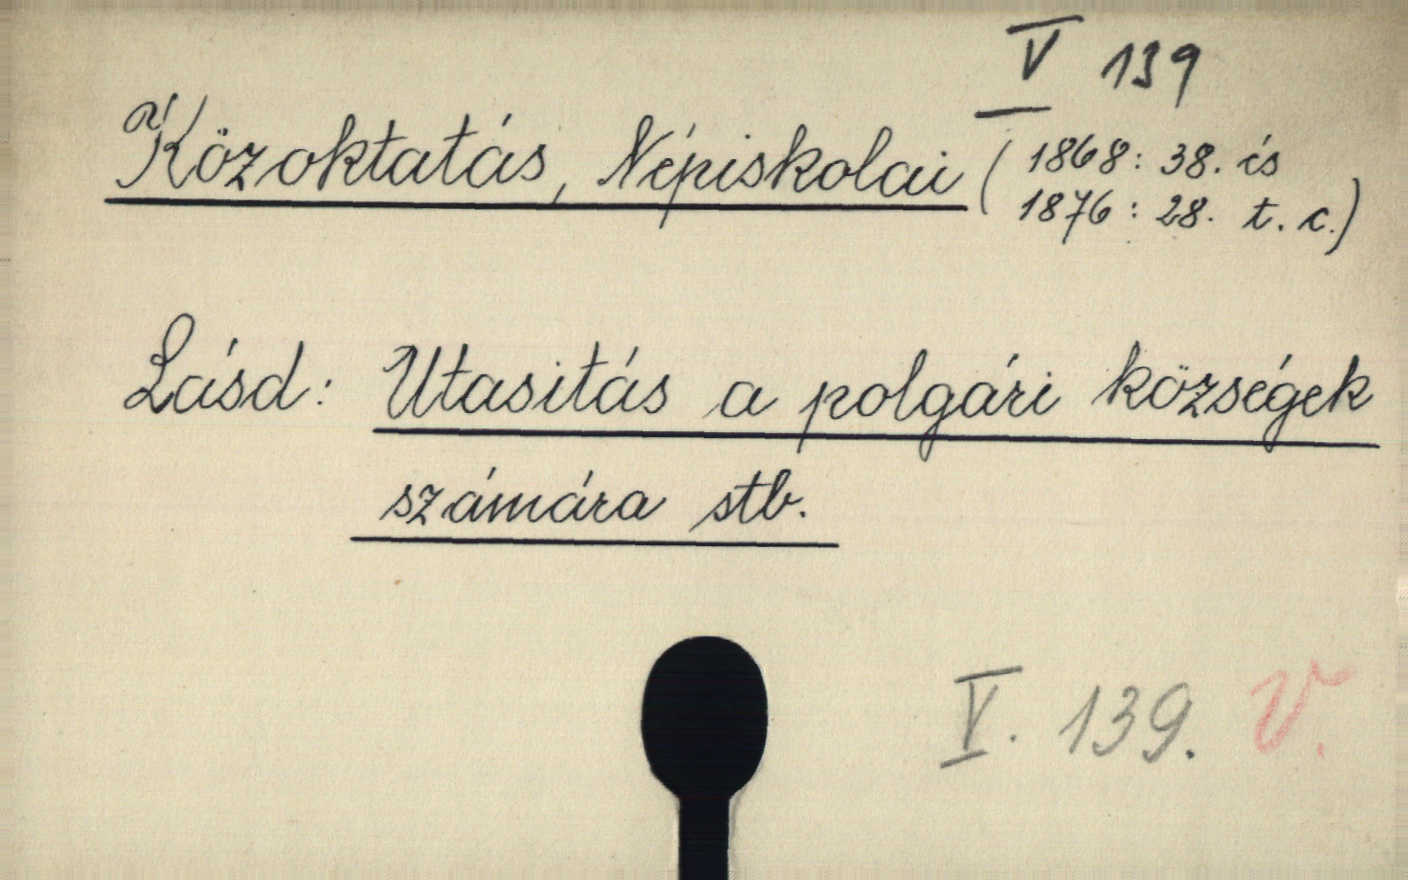 V 139
Közoktatás, Népiskolai (1868: 38. és
1876: 28. t. c.)
Lásd: Utasitás a polgári községek
számára stb.
V. 139. V.